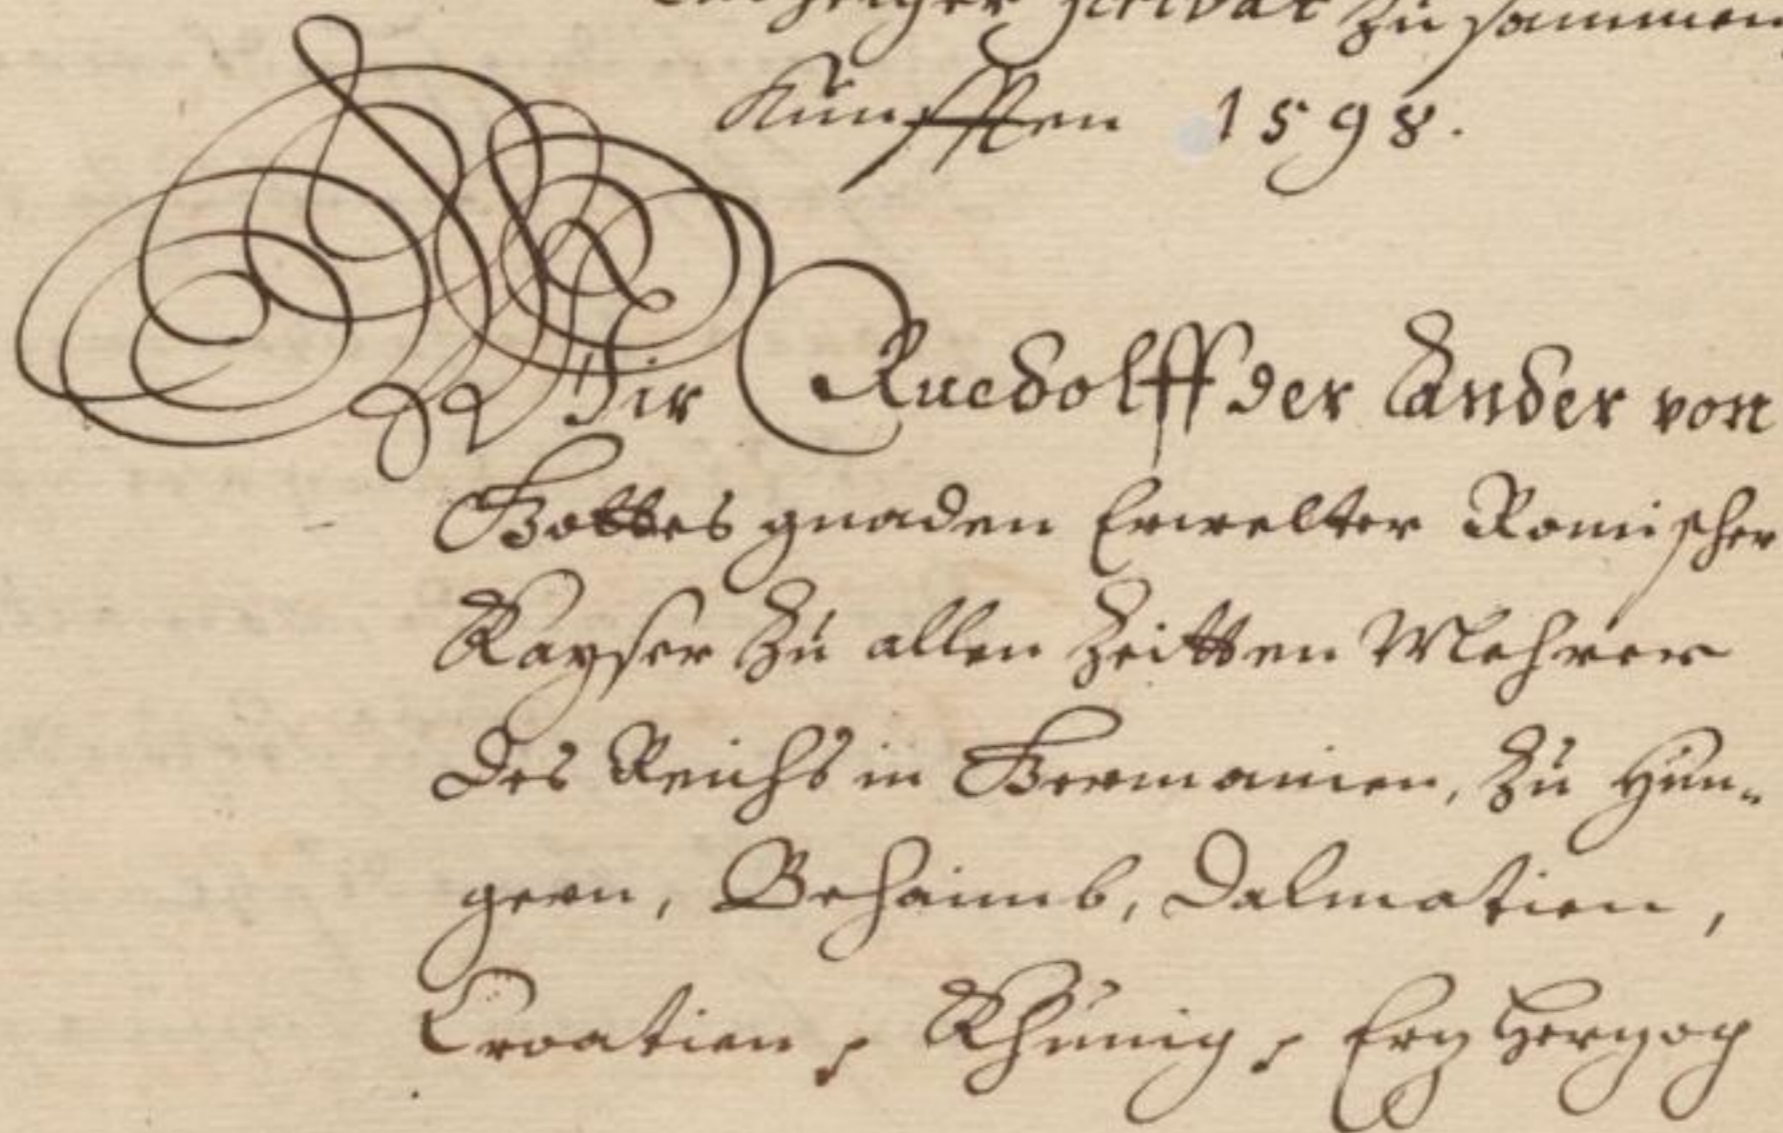 Privat zu sammen
Kunfften 1598.
Wir Ruedolff der Ander von
Gottes gnaden Erwelter Romischer
Kayser zu allen Zeitten Mehrer
des Reichs in Germanien, zu Hun„
gern, Behaimb, Dalmatien,
Croatien, Khünig, Erz Herzog